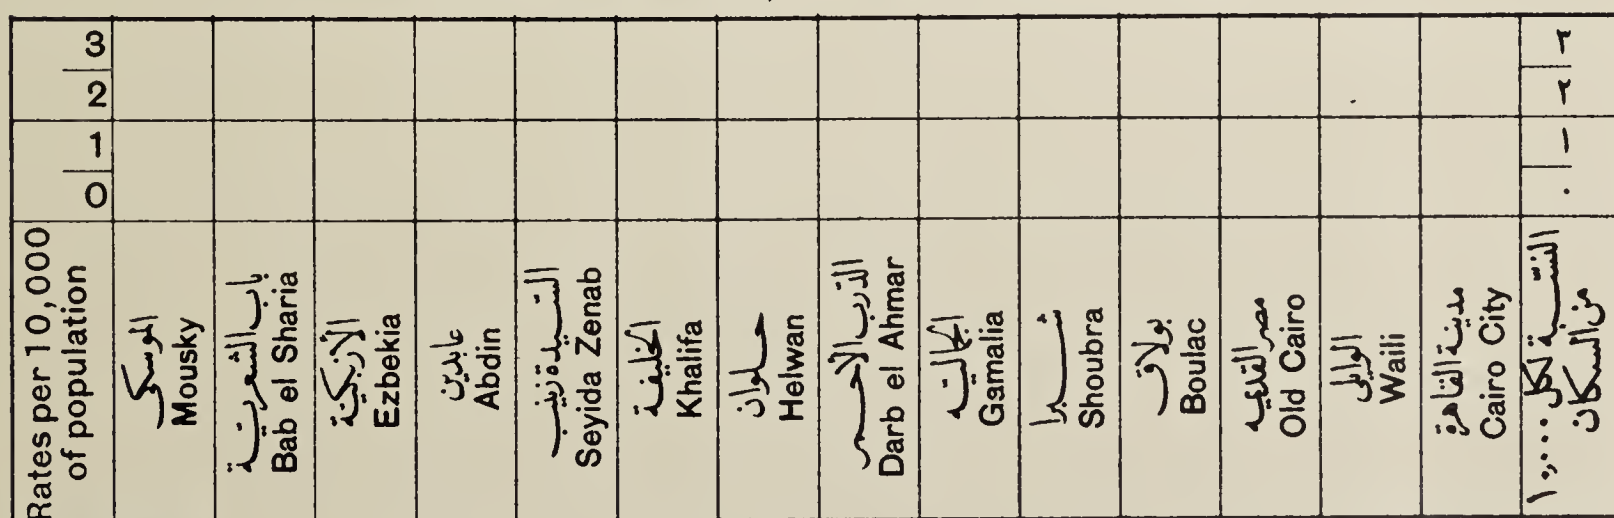 3
2
1
0
Rates per 10,000
of population
الموسكى
Mousky
باب الشعرية
Bab el Sharia
الأزبكية
Ezbekia
عابدين
Abdin
السيدة زينب
Seyida Zenab
الخليفة
Khalifa
حلوان
Helwan
الدرب الأحمر
Darb el Ahmar
الجمالية
Gamalia
شبرا
Shoubra
بولاق
Boulac
مصر القديمه
Old Cairo
الوايلى
Waili
مدينة القاهرة
Cairo City
٣
٢
١
٠
النسبة لكل ١٠,٠٠٠
من السكان